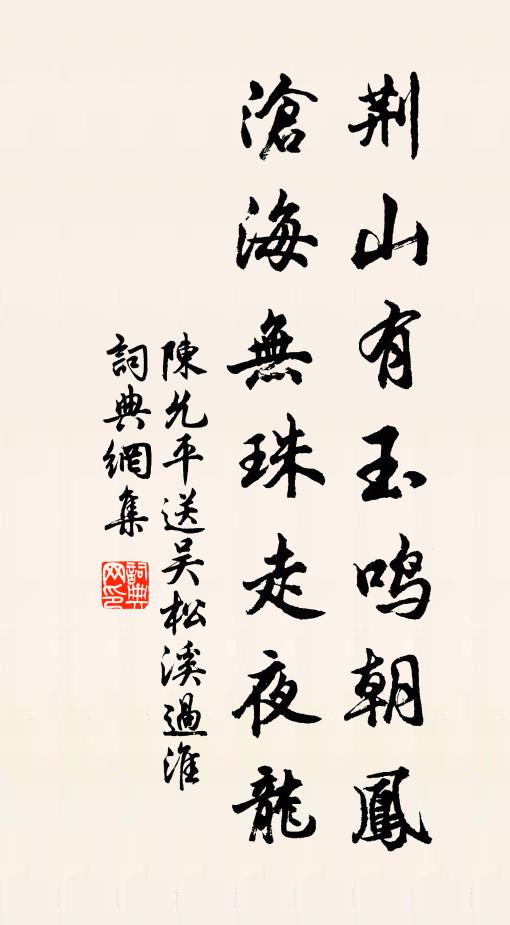 荆山有玉鸣朝鳳
滄海無珠走夜龍
陳允平送吴松溪過淮
詞典網集
詞典网印